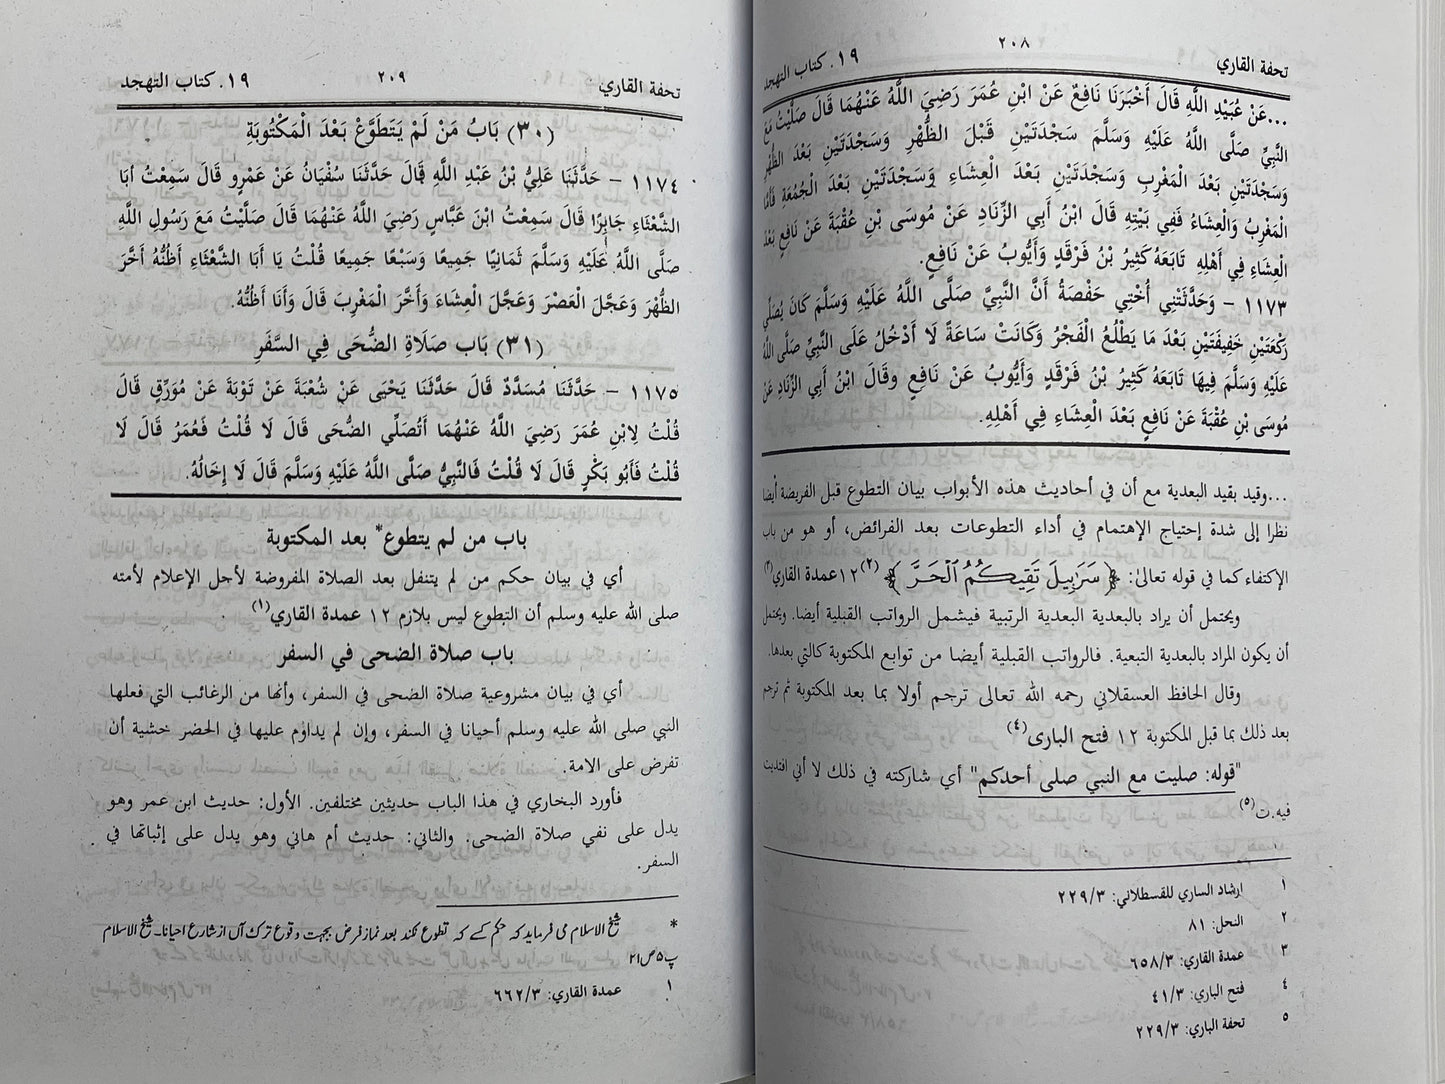 ٢٠٨
تحفة القاري
١٩. كتاب التهجد
...عَنْ عُبَيْدِ اللَّهِ قَالَ أَخْبَرَنَا نَافِعٌ عَنْ ابْنِ عُمَرَ رَضِيَ اللَّهُ عَنْهُمَا قَالَ صَلَّيْتُ مَعَ
النَّبِيِّ صَلَّى اللَّهُ عَلَيْهِ وَسَلَّمَ سَجْدَتَيْنِ قَبْلَ الظُّهْرِ وَسَجْدَتَيْنِ بَعْدَ الظُّهْرِ
وَسَجْدَتَيْنِ بَعْدَ الْمَغْرِبِ وَسَجْدَتَيْنِ بَعْدَ الْعِشَاءِ وَسَجْدَتَيْنِ بَعْدَ الْجُمُعَةِ فَأَمَّا
الْمَغْرِبُ وَالْعِشَاءُ فَفِي بَيْتِهِ قَالَ ابْنُ أَبِي الزِّنَادِ عَنْ مُوسَى بْنِ عُقْبَةَ عَنْ نَافِعٍ بَعْدَ
الْعِشَاءِ فِي أَهْلِهِ تَابَعَهُ كَثِيرُ بْنُ فَرْقَدٍ وَأَيُّوبُ عَنْ نَافِعٍ.
١١٧٣ - وَحَدَّثَتْنِي أُخْتِي حَفْصَةُ أَنَّ النَّبِيَّ صَلَّى اللَّهُ عَلَيْهِ وَسَلَّمَ كَانَ يُصَلِّي
رَكْعَتَيْنِ خَفِيفَتَيْنِ بَعْدَ مَا يَطْلُعُ الْفَجْرُ وَكَانَتْ سَاعَةً لَا أَدْخُلُ عَلَى النَّبِيِّ صَلَّى اللَّهُ
عَلَيْهِ وَسَلَّمَ فِيهَا تَابَعَهُ كَثِيرُ بْنُ فَرْقَدٍ وَأَيُّوبُ عَنْ نَافِعٍ وَقَالَ ابْنُ أَبِي الزِّنَادِ عَنْ
مُوسَى بْنِ عُقْبَةَ عَنْ نَافِعٍ بَعْدَ الْعِشَاءِ فِي أَهْلِهِ.
...وقيد بقيد البعدية مع أن في أحاديث هذه الأبواب بيان التطوع قبل الفريضة أيضا
نظرا إلى شدة إحتياج الإهتمام في أداء التطوعات بعد الفرائض، أو هو من باب
الإكتفاء كما في قوله تعالىٰ: ﴿سَرَٰبِيلَ تَقِيكُمُ ٱلۡحَرَّ﴾ (٢) ١٢ عمدة القاري(٣)
ويحتمل أن يراد بالبعدية البعدية الرتبية فيشمل الرواتب القبلية أيضا. ويحتمل
أن يكون المراد بالبعدية التبعية. فالرواتب القبلية أيضا من توابع المكتوبة كالتي بعدها.
وقال الحافظ العسقلاني رحمه الله تعالى ترجم أولا بما بعد المكتوبة ثم ترجم
بعد ذلك بما قبل المكتوبة ١٢ فتح البارى(٤)
"قوله: صليت مع النبي صلى أحدكم" أي شاركته في ذلك لا أني اقتديت
فيه.ت(٥)
١ ارشاد الساري للقسطلاني: ٢٢٩/٣
٢ النحل: ٨١
٣ عمدة القاري: ٦٥٨/٣
٤ فتح الباري: ٤١/٣
٥ تحفة الباري: ٢٢٩/٣
تحفة القاري
٢٠٩
١٩. كتاب التهجد
(٣٠) بَابُ مَنْ لَمْ يَتَطَوَّعْ بَعْدَ الْمَكْتُوبَةِ
١١٧٤ - حَدَّثَنَا عَلِيُّ بْنُ عَبْدِ اللَّهِ قَالَ حَدَّثَنَا سُفْيَانُ عَنْ عَمْرٍو قَالَ سَمِعْتُ أَبَا
الشَّعْثَاءِ جَابِرًا قَالَ سَمِعْتُ ابْنَ عَبَّاسٍ رَضِيَ اللَّهُ عَنْهُمَا قَالَ صَلَّيْتُ مَعَ رَسُولِ اللَّهِ
صَلَّى اللَّهُ عَلَيْهِ وَسَلَّمَ ثَمَانِيًا جَمِيعًا وَسَبْعًا جَمِيعًا قُلْتُ يَا أَبَا الشَّعْثَاءِ أَظُنُّهُ أَخَّرَ
الظُّهْرَ وَعَجَّلَ الْعَصْرَ وَعَجَّلَ الْعِشَاءَ وَأَخَّرَ الْمَغْرِبَ قَالَ وَأَنَا أَظُنُّهُ.
(٣١) بَاب صَلَاةِ الضُّحَى فِي السَّفَرِ
١١٧٥ - حَدَّثَنَا مُسَدَّدٌ قَالَ حَدَّثَنَا يَحْيَى عَنْ شُعْبَةَ عَنْ تَوْبَةَ عَنْ مُوَرِّقٍ قَالَ
قُلْتُ لِابْنِ عُمَرَ رَضِيَ اللَّهُ عَنْهُمَا أَتُصَلِّي الضُّحَى قَالَ لَا قُلْتُ فَعُمَرُ قَالَ لَا
قُلْتُ فَأَبُو بَكْرٍ قَالَ لَا قُلْتُ فَالنَّبِيُّ صَلَّى اللَّهُ عَلَيْهِ وَسَلَّمَ قَالَ لَا إِخَالُهُ.
باب من لم يتطوع* بعد المكتوبة
أي في بيان حكم من لم يتنفل بعد الصلاة المفروضة لأجل الإعلام لأمته
صلى الله عليه وسلم أن التطوع ليس بلازم ١٢ عمدة القاري(١)
باب صلاة الضحى في السفر
أي في بيان مشروعية صلاة الضحى في السفر، وأنها من الرغائب التي فعلها
النبي صلى الله عليه وسلم أحيانا في السفر، وإن لم يداوم عليها في الحضر خشية أن
تفرض على الامة.
فأورد البخاري في هذا الباب حديثين مختلفين. الأول: حديث ابن عمر وهو
يدل على نفي صلاة الضحى. والثاني: حديث أم هاني وهو يدل على إثباتها في
السفر.
* شیخ الاسلام می فرماید کہ حکم کسے کہ تطوع نکند بعد نماز فرض بجہت وقوع ترک آں از شارع احیانا۔ شیخ الاسلام
پ۵ص۲۱
١ عمدة القاري: ٦٦٢/٣